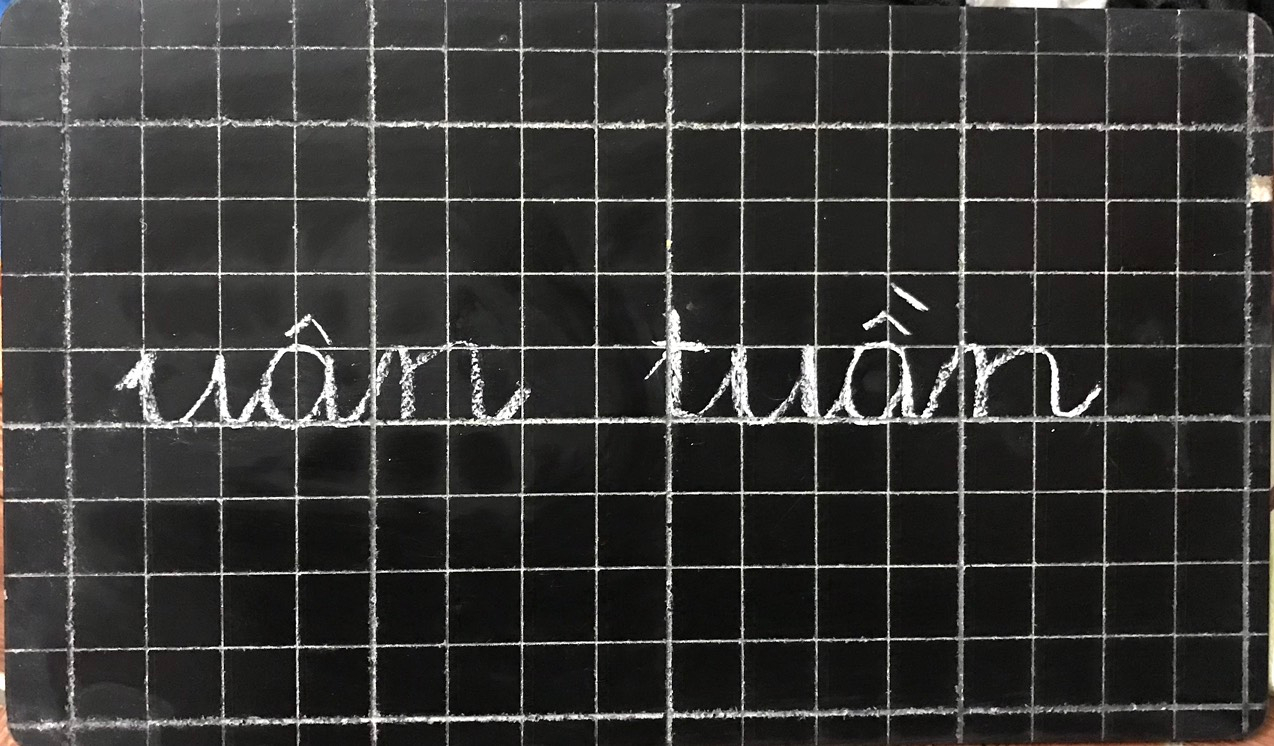 uân tuần